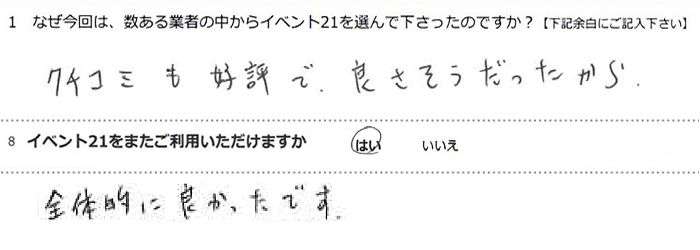 1 なぜ今回は、数ある業者の中からイベント21を選んで下さったのですか？【下記余白にご記入下さい】
クチコミも好評で、良さそうだったから.
8 イベント21をまたご利用いただけますか はい いいえ
全体的に良かったです。